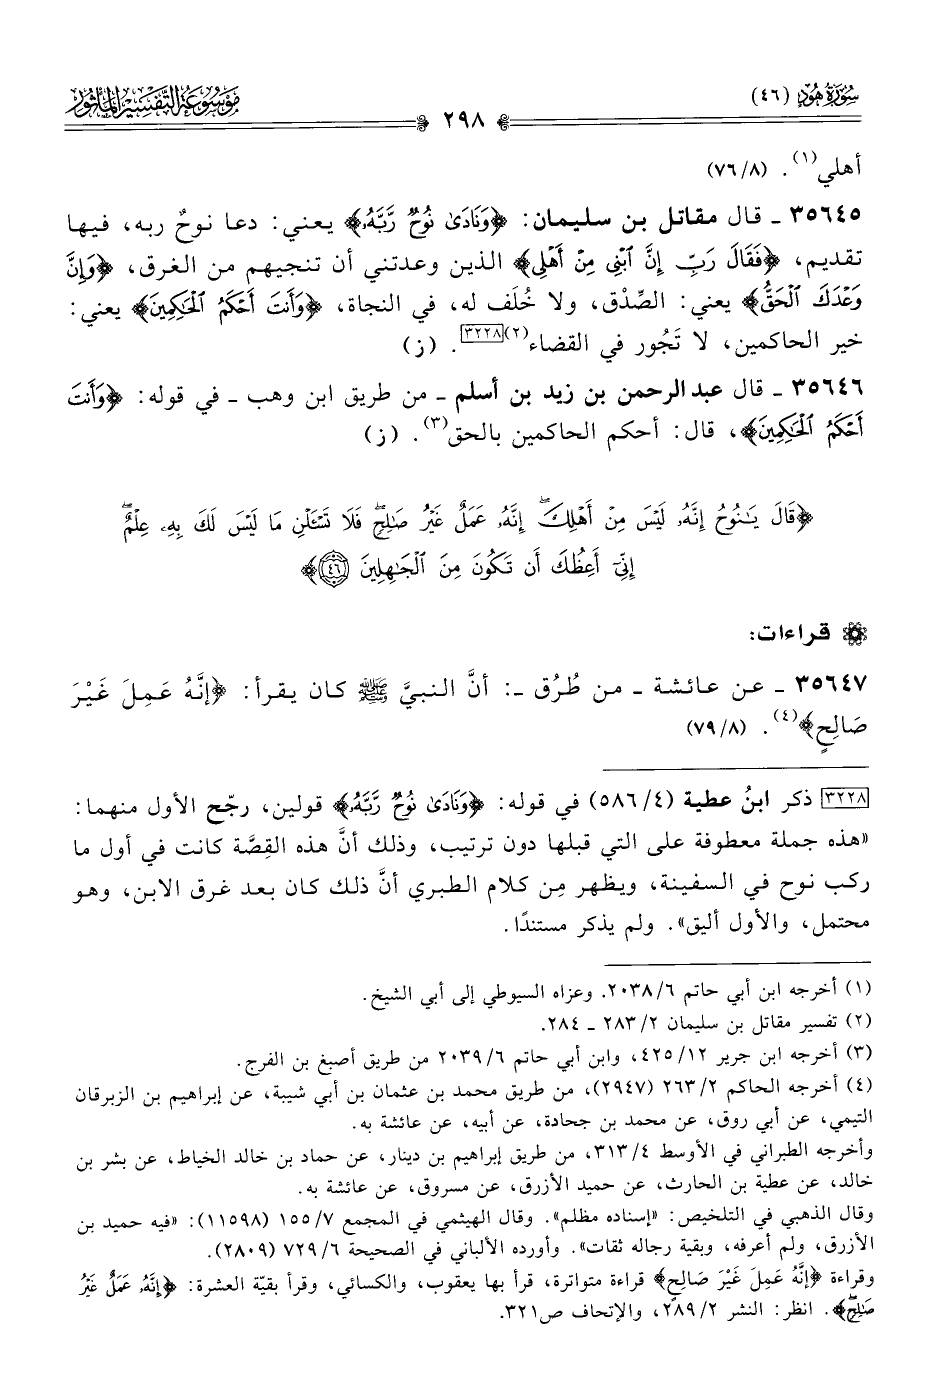 سُورَةُ هُودٍ (٤٦)
٢٩٨
مَوْسُوعَةُ التَّفْسِيرِ المَأْثُور
أهلي(١). (٧٦/٨)
٣٥٦٤٥ ـ قال مقاتل بن سليمان: ﴿وَنَادَىٰ نُوحٌ رَّبَّهُۥ﴾ يعني: دعا نوحٌ ربه، فيها
تقديم، ﴿فَقَالَ رَبِّ إِنَّ ٱبْنِى مِنْ أَهْلِى﴾ الذين وعدتني أن تنجيهم من الغرق، ﴿وَإِنَّ
وَعْدَكَ ٱلْحَقُّ﴾ يعني: الصِّدْق، ولا خُلَف له، في النجاة، ﴿وَأَنتَ أَحْكَمُ ٱلْحَٰكِمِينَ﴾ يعني:
خير الحاكمين، لا تَجُور في القضاء(٢)[٣٢٢٨]. (ز)
٣٥٦٤٦ ـ قال عبد الرحمن بن زيد بن أسلم ـ من طريق ابن وهب ـ في قوله: ﴿وَأَنتَ
أَحْكَمُ ٱلْحَٰكِمِينَ﴾، قال: أحكم الحاكمين بالحق(٣). (ز)
﴿قَالَ يَٰنُوحُ إِنَّهُۥ لَيْسَ مِنْ أَهْلِكَ ۖ إِنَّهُۥ عَمَلٌ غَيْرُ صَٰلِحٍ ۖ فَلَا تَسْـَٔلْنِ مَا لَيْسَ لَكَ بِهِۦ عِلْمٌ ۖ
إِنِّىٓ أَعِظُكَ أَن تَكُونَ مِنَ ٱلْجَٰهِلِينَ ٤٦﴾
قراءات:
٣٥٦٤٧ ـ عن عائشة ـ من طُرُق ـ: أنَّ النبيَّ ﷺ كان يقرأ: ﴿إِنَّهُ عَمِلَ غَيْرَ
صَالِحٍ﴾(٤). (٧٩/٨)
[٣٢٢٨] ذكر ابنُ عطية (٥٨٦/٤) في قوله: ﴿وَنَادَىٰ نُوحٌ رَّبَّهُۥ﴾ قولين، رجّح الأول منهما:
«هذه جملة معطوفة على التي قبلها دون ترتيب، وذلك أنَّ هذه القِصَّة كانت في أول ما
ركب نوح في السفينة، ويظهر مِن كلام الطبري أنَّ ذلك كان بعد غرق الابن، وهو
محتمل، والأول أليق». ولم يذكر مستندًا.
(١) أخرجه ابن أبي حاتم ٢٠٣٨/٦. وعزاه السيوطي إلى أبي الشيخ.
(٢) تفسير مقاتل بن سليمان ٢٨٣/٢ ـ ٢٨٤.
(٣) أخرجه ابن جرير ٤٢٥/١٢، وابن أبي حاتم ٢٠٣٩/٦ من طريق أصبغ بن الفرج.
(٤) أخرجه الحاكم ٢٦٣/٢ (٢٩٤٧)، من طريق محمد بن عثمان بن أبي شيبة، عن إبراهيم بن الزبرقان
التيمي، عن أبي روق، عن محمد بن جحادة، عن أبيه، عن عائشة به.
وأخرجه الطبراني في الأوسط ٣١٣/٤، من طريق إبراهيم بن دينار، عن حماد بن خالد الخياط، عن بشر بن
خالد، عن عطية بن الحارث، عن حميد الأزرق، عن مسروق، عن عائشة به.
وقال الذهبي في التلخيص: «إسناده مظلم». وقال الهيثمي في المجمع ١٥٥/٧ (١١٥٩٨): «فيه حميد بن
الأزرق، ولم أعرفه، وبقية رجاله ثقات». وأورده الألباني في الصحيحة ٧٢٩/٦ (٢٨٠٩).
وقراءة ﴿إِنَّهُ عَمِلَ غَيْرَ صَالِحٍ﴾ قراءة متواترة، قرأ بها يعقوب، والكسائي، وقرأ بقيّة العشرة: ﴿إِنَّهُۥ عَمَلٌ غَيْرُ
صَٰلِحٍ ۖ﴾. انظر: النشر ٢٨٩/٢، والإتحاف ص٣٢١.